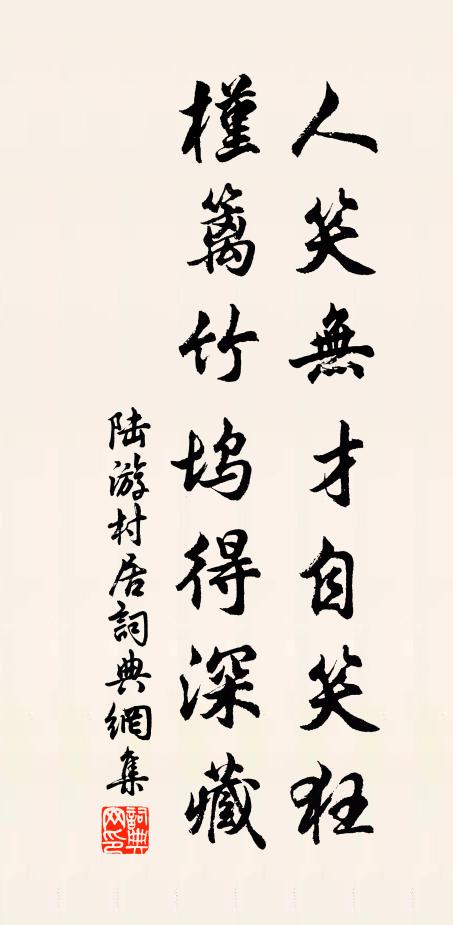 人笑無才自笑狂
槿籬竹坞得深藏
陆游村居詞典網集
詞典网印